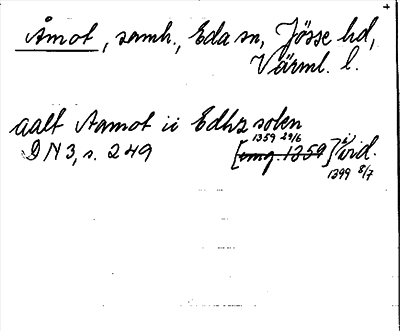 Åmot, samh., Eda sn, Jösse hd,
Värml. l.
aalt Aamot ii Edhz sokn
1359 29/6
DN 3, s. 249 [omg. 1359] i vid.
1399 8/7